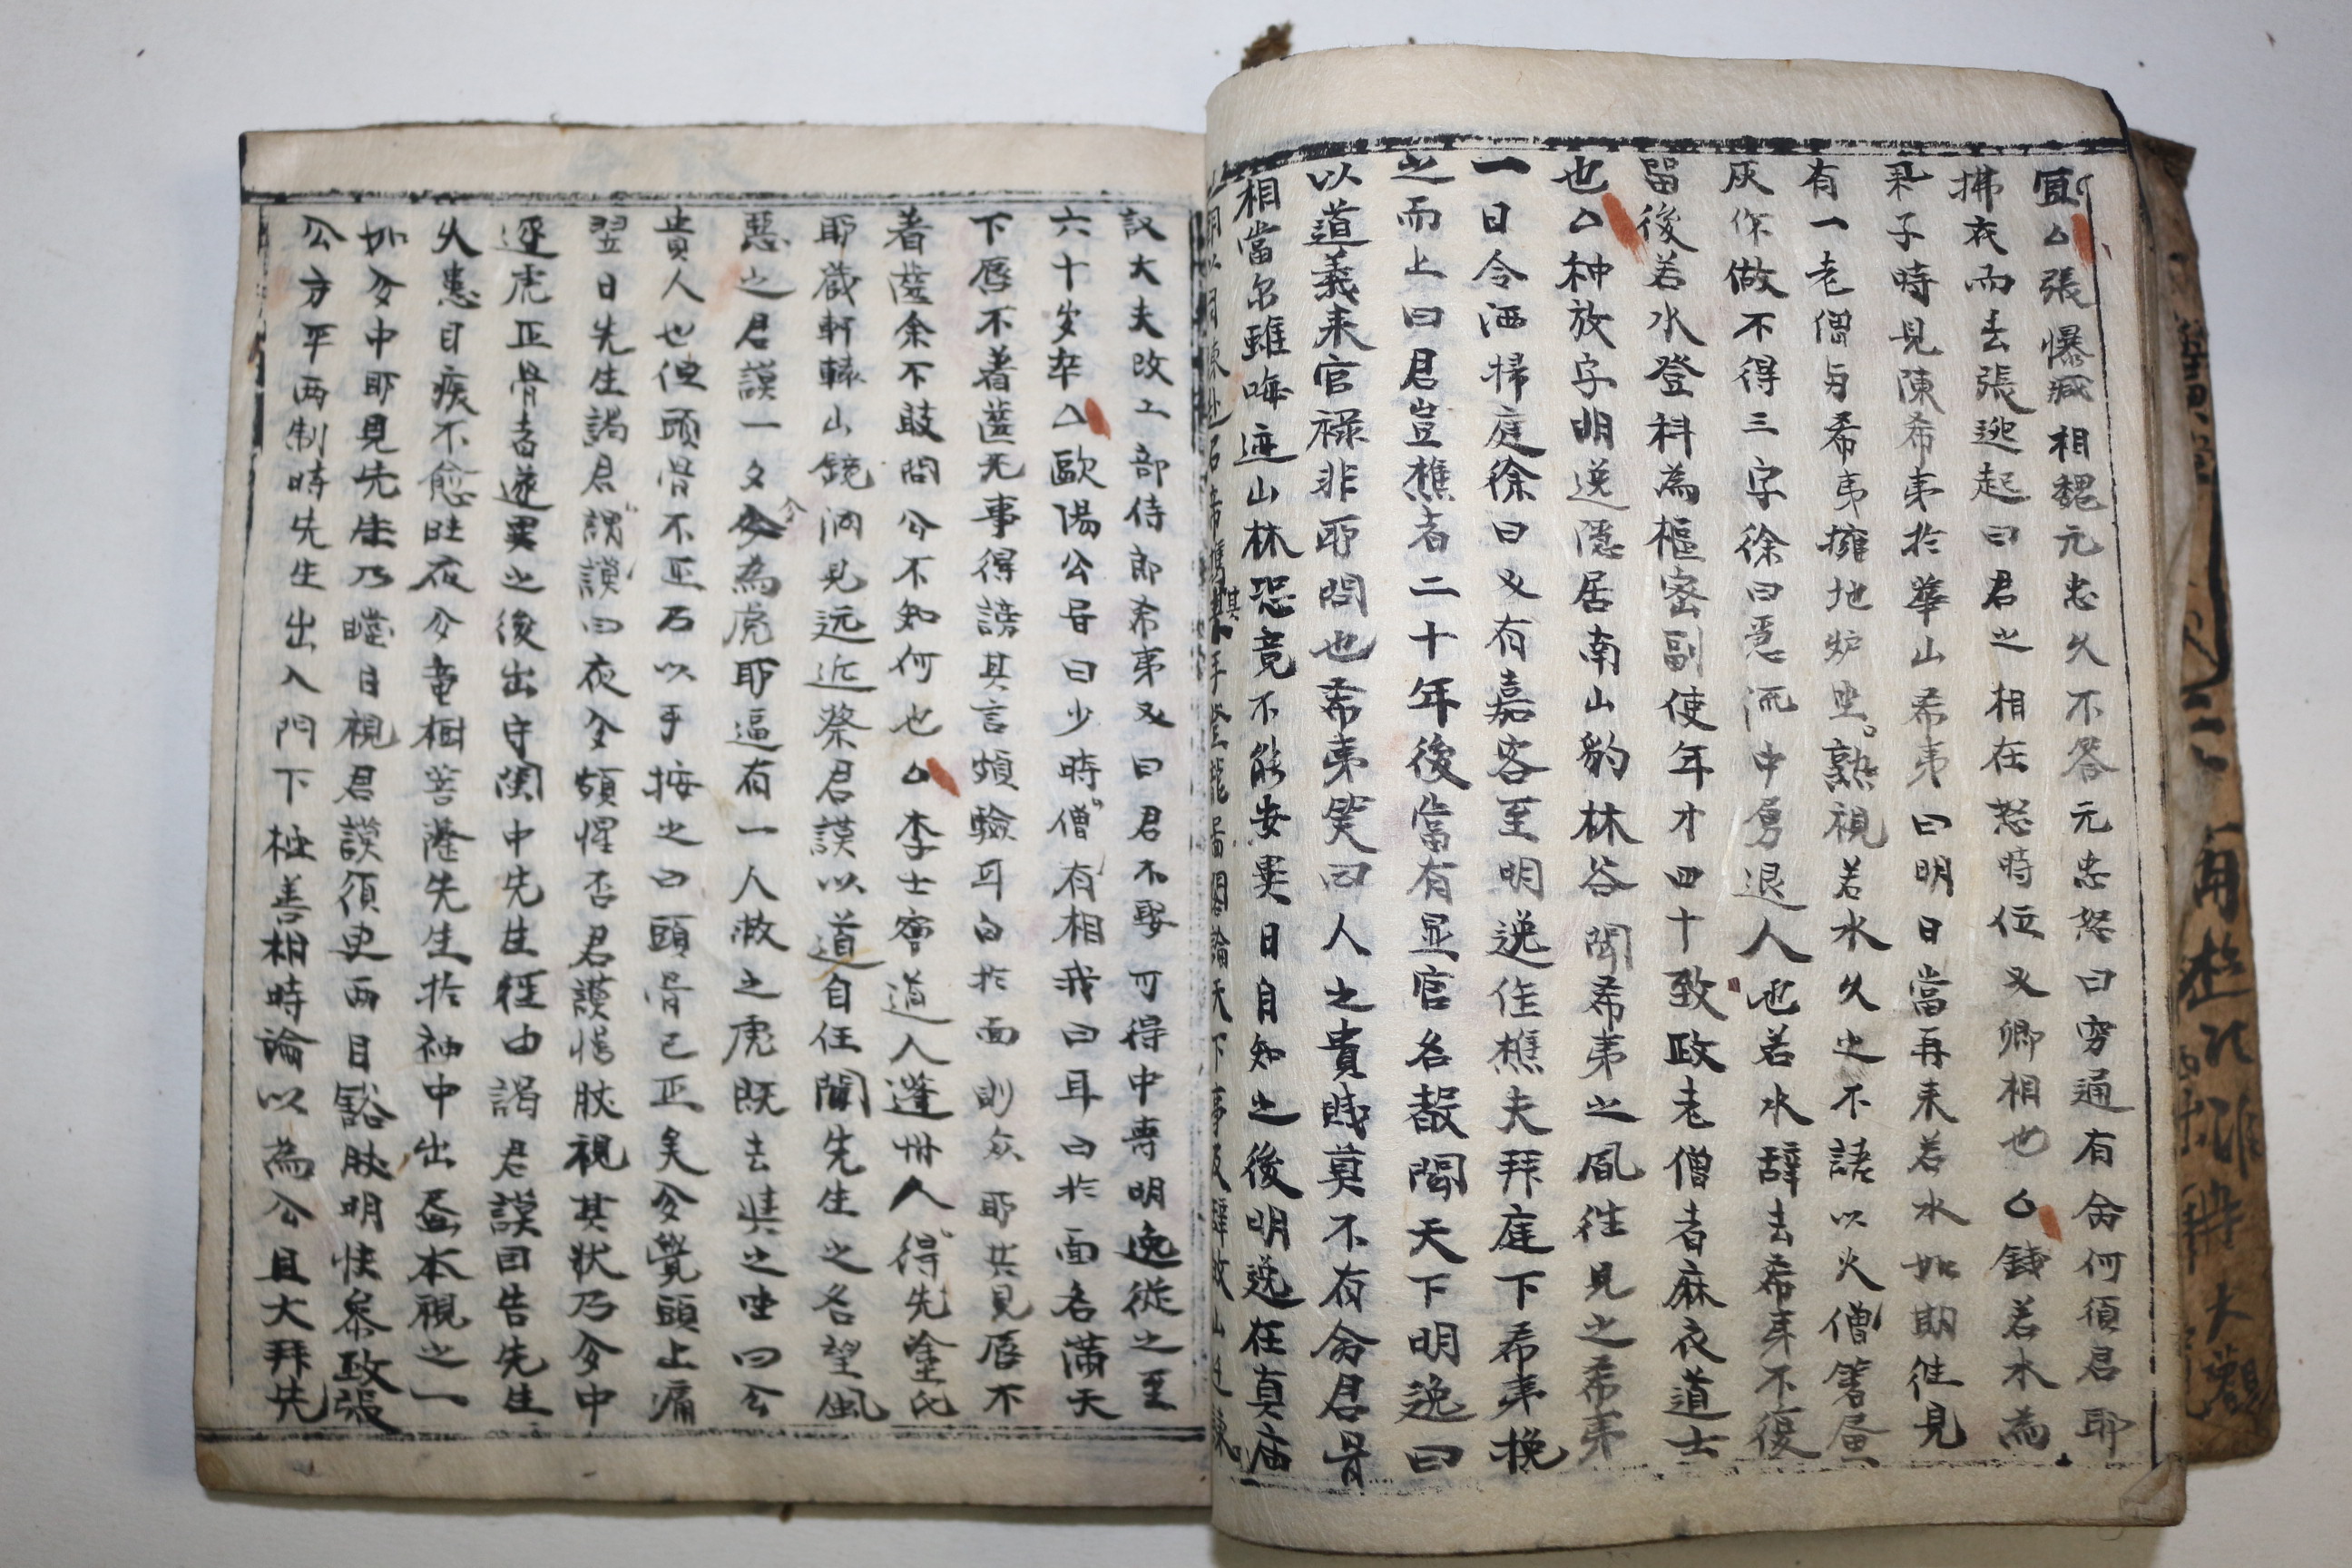 宜△張憬臧相魏元忠久不答元忠怒曰穷通有命何須君耶
拂衣而去張遽起曰君之相在怒時位又卿相也△錢若水為
乘子時見陳希夷於華山希夷曰明日當再来若水如期往見
有一老僧与希夷擁地炉坐熟視若水久之不語以火僧箸畫
灰作做不得三字徐曰急流中勇退人也若水辞去希夷不復
留後若水登科為樞密副使年才四十致政老僧者麻衣道士
也△种放字明逸隱居南山豹林谷聞希夷之風往見之希夷
一日令洒掃庭徐曰又有嘉客至明逸作樵夫拜庭下希夷挽
之而上曰君豈樵者二十年後當有显官名聲聞天下明逸曰
以道義来官禄非耶問也希夷笑曰人之貴賎莫不有命君骨
相當尓雖晦迹山林恐竟不能安異日自知之後明逸在真庙
訍大夫改工部侍郎希夷又曰君不娶可得中壽明逸從之至
六十岁卒△歐陽公号曰少時僧有相我曰耳白於面名滿天
下唇不著齒无事得謗其言頗驗耳白於面則众耶共見唇不
著齒余不敢問公不知何也△李士寧道人蓬州人得先塗氏
耶蔵軒轅山鏡洞見远近蔡君謨以道自任聞先生之名望風
惡之君謨一夕夢為虎耶逼有一人救之虎既去與之坐曰公
貴人也但頭骨不正乃以手按之曰頭骨已正矣夢覺頭上痛
翌日先生謁君謨謂曰夜夢頗惺否君謨愕肰視其状乃夢中
逐虎正骨者遂異之後出守閩中先生徑由謁君謨因告先生
久患目疾不愈昨夜夢龍樹菩薩先生於袖中出一本視之一
如夢中耶見先生乃瞪目視君謨須臾两目豁肰明快叅政張
公方平两制時先生出入門下極善相時論以為公且大拜先